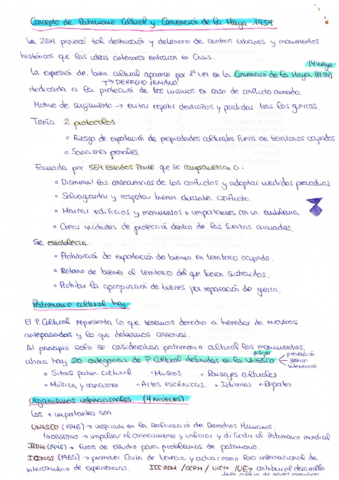 Concepto de Patrimonio Cultural y Convención de la Haya 1954
La 2GM provocó tal destrucción y deterioro de centros urbanos y monumentos
históricos que las ideas anteriores entraron en crisis.
14 mayo
La expresión de bien cultural aparece por 1ª vez en la Convención de la Haya (1954)
→ DERECHO HUMANO
dedicada a la protección de los mismos en caso de conflicto armado.
Motivo de surgimiento → evitar repetir destrozos y pérdidas tras las guerras
Tenía 2 protocolos
◦ Riesgo de exportación de propiedades culturales fuera de territorios ocupados
◦ Sanciones penales
Firmada por Estados Parte que se comprometieron a:
◦ Disminuir las consecuencias de los conflictos y adoptar medidas preventivas
◦ Salvaguardar y respetar bienes durante conflicto
◦ Marcar edificios y monumentos importantes con un emblema
◦ Crear unidades de protección dentro de las fuerzas armadas.
Se establecía:
◦ Prohibición de exportación de bienes en territorio ocupado.
◦ Retorno de bienes al territorio del que fueron sustraídos.
◦ Prohibir la apropiación de bienes por reparación de guerra.
Patrimonio cultural hoy
El P. Cultural representa lo que tenemos derecho a heredar de nuestros
antepasados y lo que debemos conservar.
Al principio solo se consideraban patrimonio cultural los monumentos,
ahora hay 20 categorías de P. Cultural definidas en la UNESCO
◦ Sitios patrim. cultural ◦ Museos ◦ Paisajes culturales
◦ Música y canciones ◦ Artes escénicas ◦ Idiomas ◦ Deportes
Organismos internacionales (4 NIVELES)
Los + importantes son
UNESCO (1946) → inspirada en la Declaración de Derechos Humanos.
→ impulsar el conocimiento y valorar y difundir el Patrimonio mundial
ICOM (1946) → foros de estudio para problemas de patrimonio.
ICOMOS (1965) → promover teoría de y actúa como foro internacional de
intercambio de experiencias.